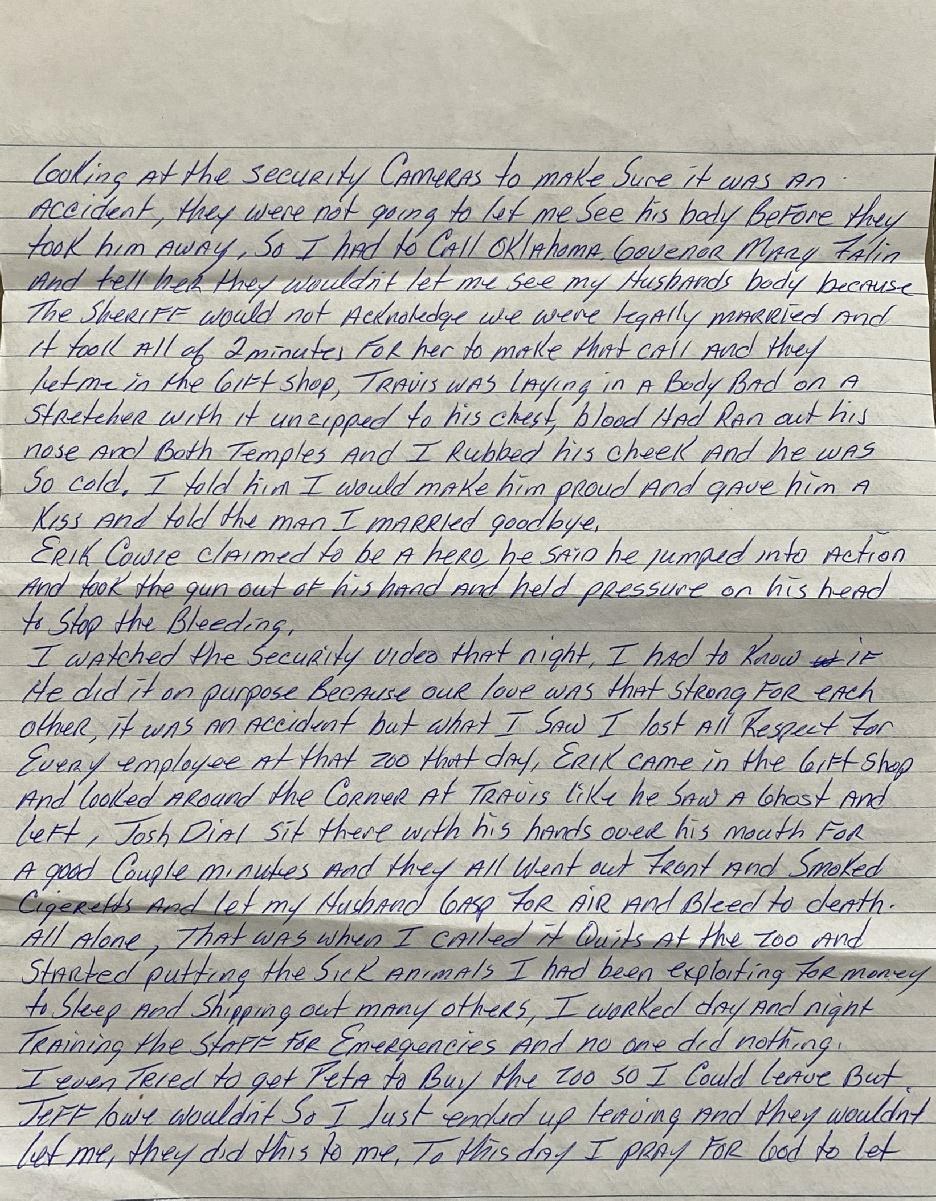 Looking at the security Cameras to make sure it was an
Accident, they were not going to let me see his body before they
took him away, So I had to Call Oklahoma Govenor Mary Falin
And tell her they wouldn't let me see my Husbands body because
The Sheriff would not Acknoledge we were legally married and
it took all of 2 minutes for her to make that call and they
let me in the Gift shop, Travis was laying in a Body Bad on a
Stretcher with it unzipped to his chest, blood Had Ran out his
nose and Both Temples and I Rubbed his cheek and he was
So cold. I told him I would make him proud and gave him a
Kiss and told the man I married goodbye.
Erik Cowie claimed to be a hero, he said he jumped into action
And took the gun out of his hand and held pressure on his head
to Stop the Bleeding.
I watched the Security video that night, I had to Know if
He did it on purpose Because our love was that strong for each
other, it was an accident but what I Saw I lost all Respect for
Every employee at that zoo that day, Erik came in the Gift Shop
And looked around the Corner at Travis like he saw a Ghost and
left, Josh Dial sit there with his hands over his mouth for
A good Couple minutes and they all went out Front and Smoked
Cigeretts and let my Husband Gasp for air and Bleed to death.
All alone, That was when I called it Quits at the zoo and
Started putting the Sick animals I had been exploiting for money
to Sleep and Shipping out many others, I worked day and night
Training the Staff for Emergencies and no one did nothing.
I even Tried to get Peta to Buy the zoo so I Could leave But
Jeff lowe wouldn't So I Just ended up leaving and they wouldn't
let me, they did this to me. To this day I pray for God to let